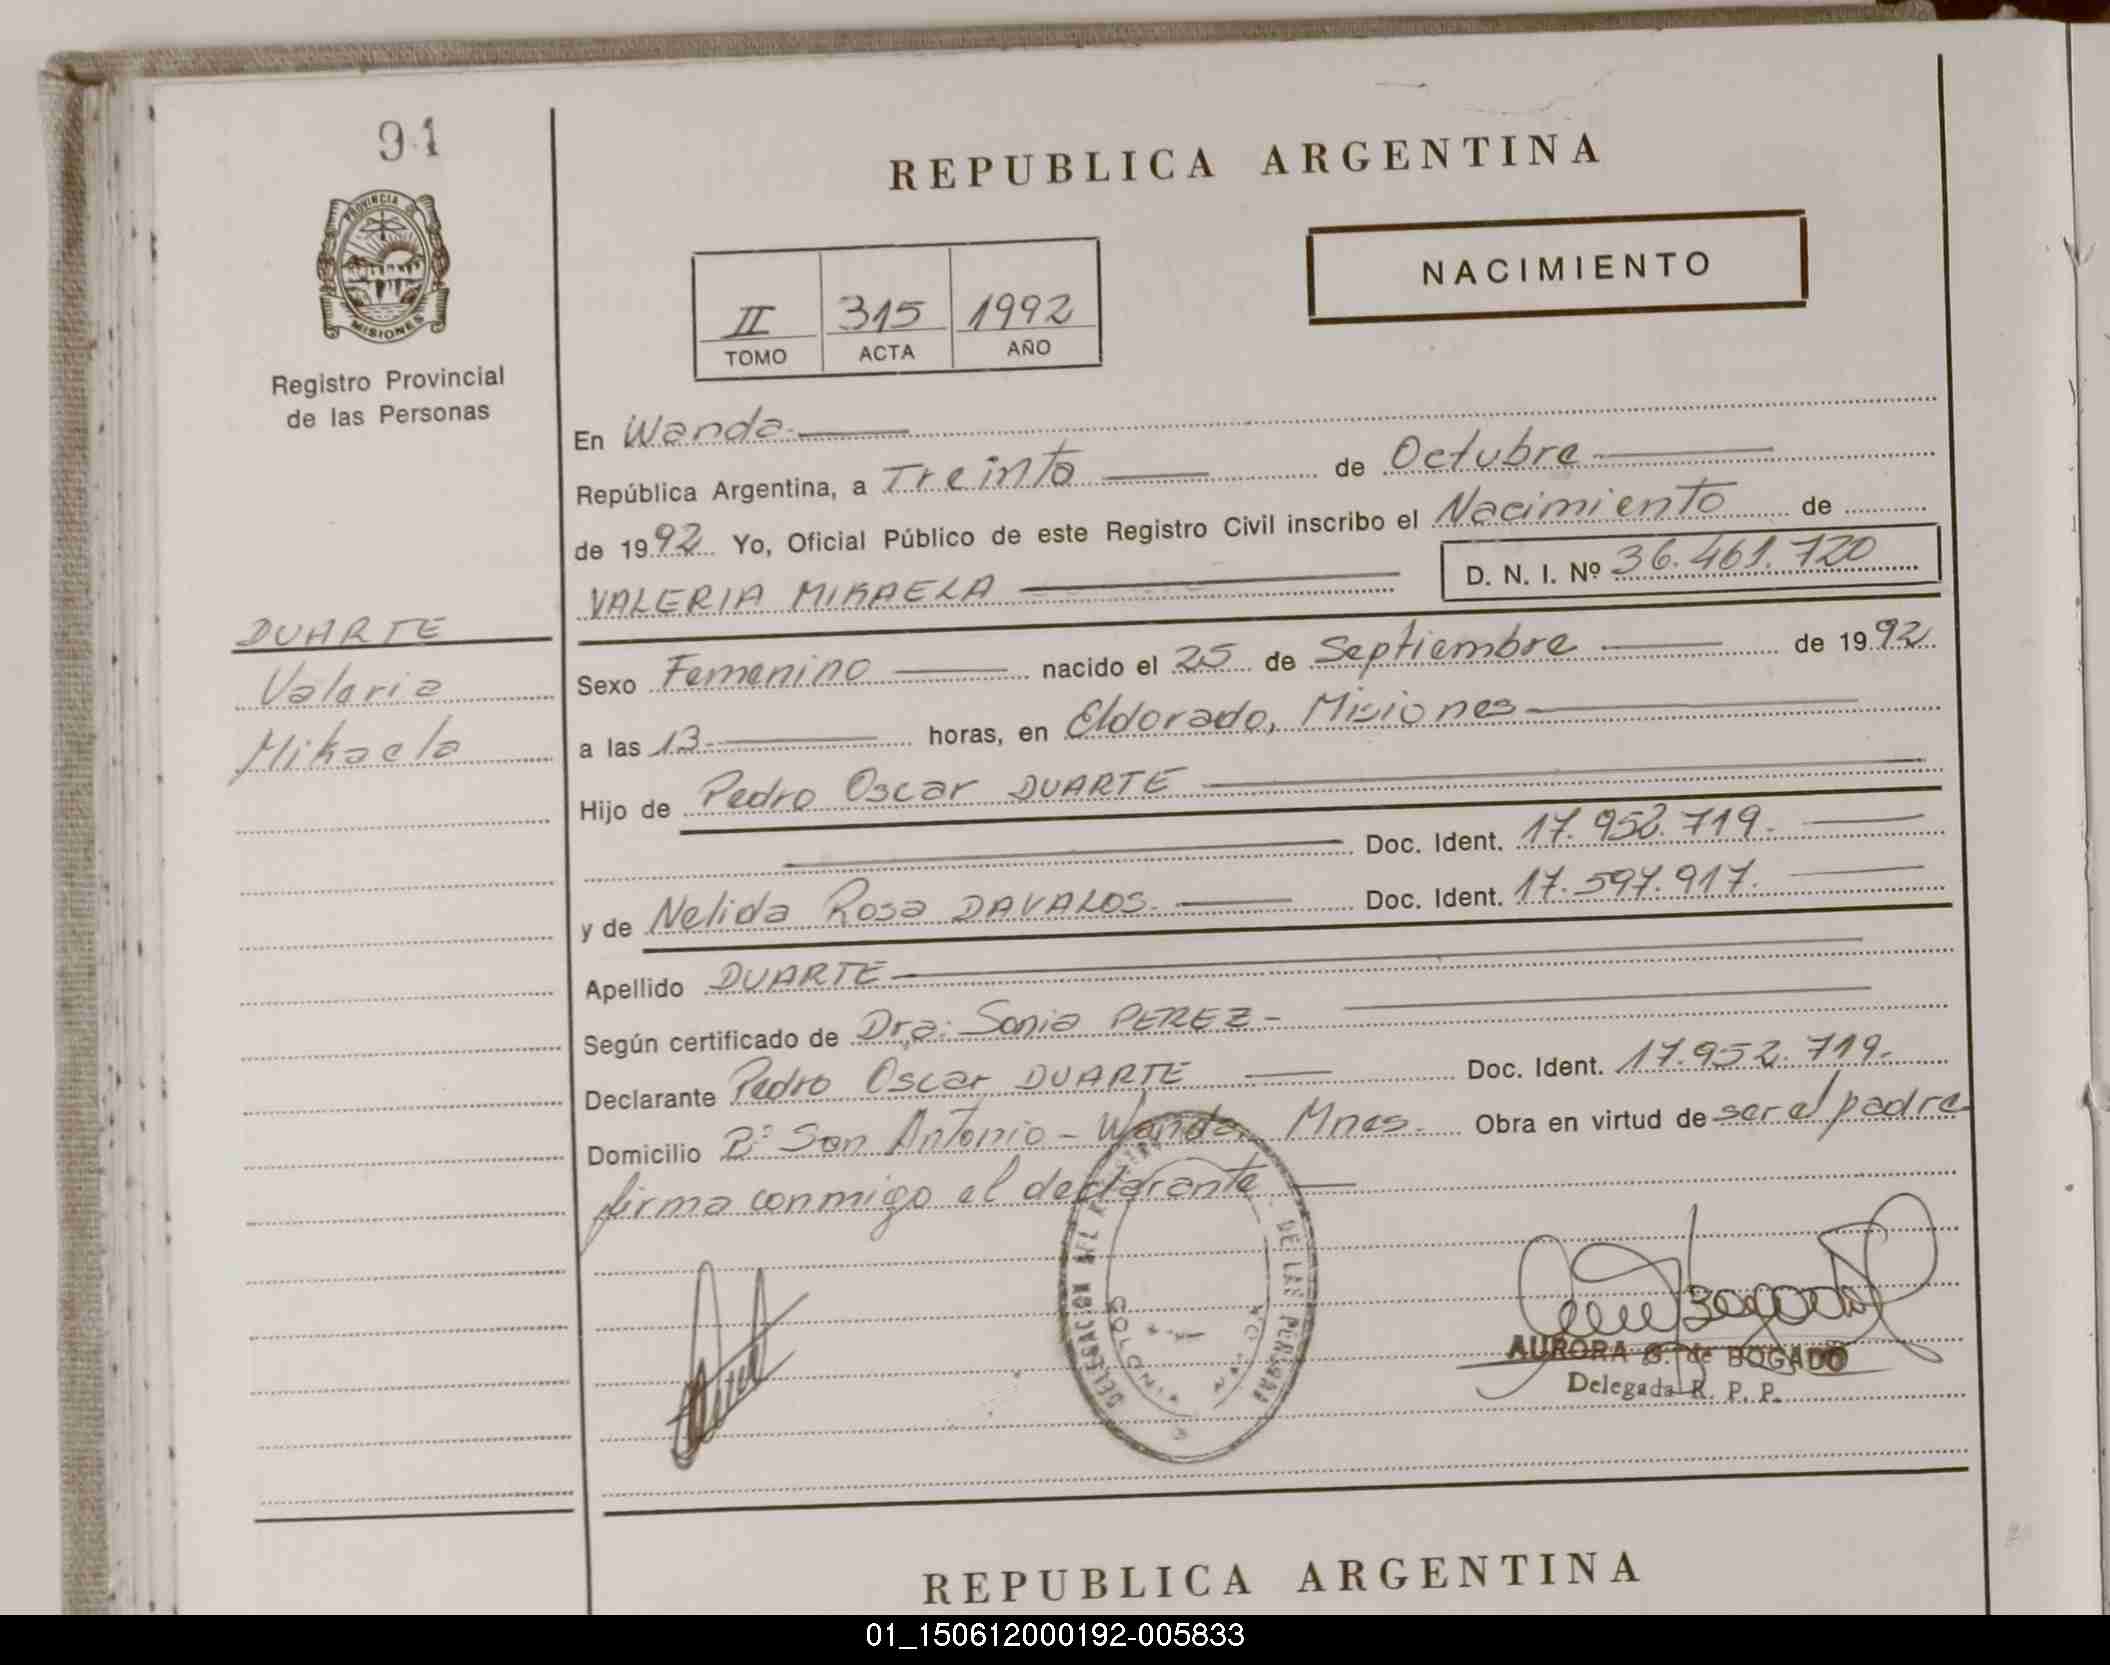 91
PROVINCIA DE
MISIONES
Registro Provincial
de las Personas
REPUBLICA ARGENTINA
NACIMIENTO
II 315 1992
TOMO ACTA AÑO
En Wanda.
República Argentina, a Treinta de Octubre
de 1992 Yo, Oficial Público de este Registro Civil inscribo el Nacimiento de
VALERIA MIKAELA D. N. I. Nº 36.461.720
DUARTE
Valeria
Mikaela
Sexo Femenino nacido el 25 de Septiembre de 1992.
a las 13 horas, en Eldorado, Misiones
Hijo de Pedro Oscar DUARTE
Doc. Ident. 17.952.719.
y de Nelida Rosa DAVALOS. Doc. Ident. 17.597.917.
Apellido DUARTE
Según certificado de Dra. Sonia PEREZ-
Declarante Pedro Oscar DUARTE Doc. Ident. 17.952.719.
Domicilio Bº San Antonio - Wanda, Mnes. Obra en virtud de ser el padre
firma conmigo el declarante
DELEGACION DEL DE LAS PERSONAS
COLONIA WANDA
AURORA G. de BOGADO
Delegada R. P. P.
REPUBLICA ARGENTINA
01_150612000192-005833